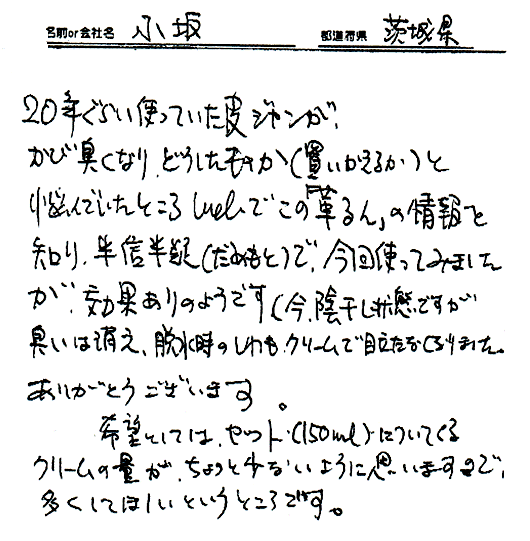 名前or会社名 小坂 都道府県 茨城県
20年ぐらい使っていた皮ジャンが、
かび臭くなり、どうしたものか(買いかえるか)と
悩んでいたところ Webで この「革るん」の情報を
知り、半信半疑(だめもと)で、今回使ってみました
が、効果ありのようです(今、陰干し状態ですが
臭いは消え、脱水時のしわも、クリームで目立たなくなりました。
ありがとうございます。
希望としては、セット(150ml)についてくる
クリームの量が、ちょっと少ないように思いますので、
多くしてほしいというところです。